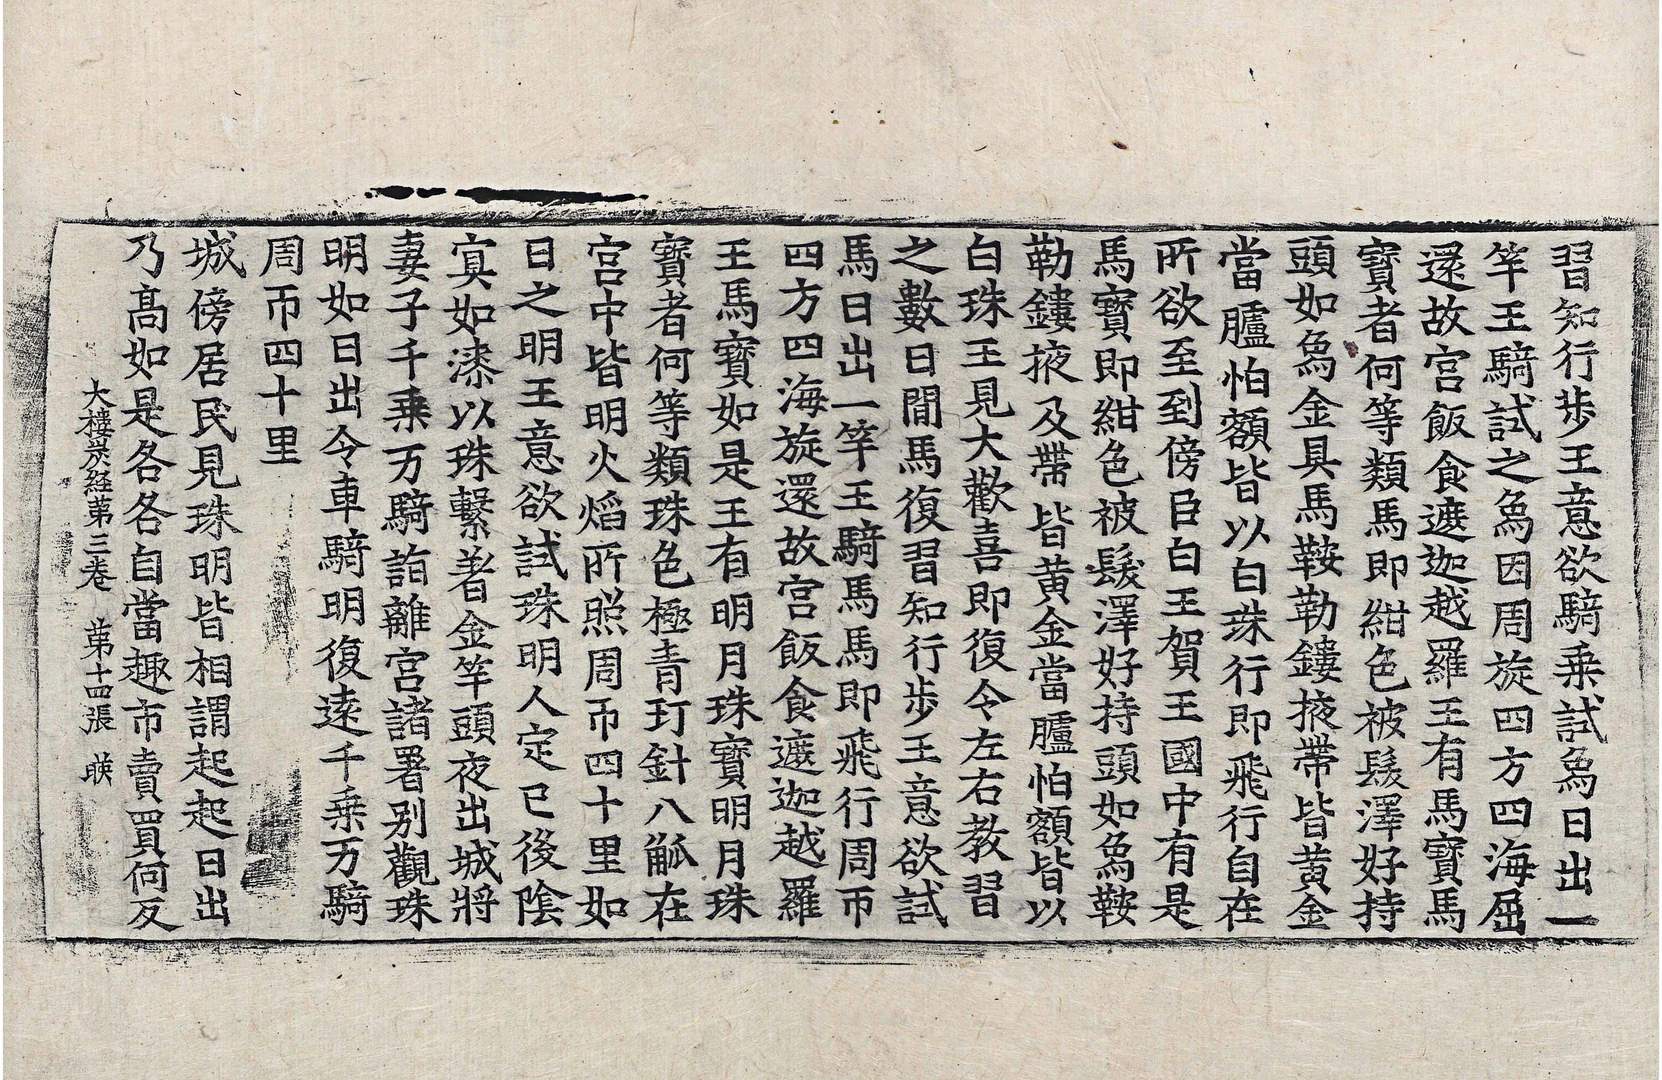 習知行步王意欲騎乗試爲日出一
竿王騎試之爲因周旋四方四海屈
還故宫飯食遮迦越羅王有馬寶馬
寶者何等類馬即紺色被髮澤好持
頭如爲金具馬鞍勒鏤掖帶皆黄金
當臚怕額皆以白珠行即飛行自在
所欲至到傍臣白王賀王國中有是
馬寶即紺色被髮澤好持頭如爲鞍
勒鏤掖及帶皆黄金當臚怕額皆以
白珠王見大歡喜即復令左右教習
之數日間馬復習知行步王意欲試
馬日出一竿王騎馬馬即飛行周帀
四方四海旋還故宫飯食遮迦越羅
王馬寶如是王有明月珠寶明月珠
寶者何等類珠色極青玎針八觚在
宫中皆明火焰所照周帀四十里如
日之明王意欲試珠明人定已後陰
寘如漆以珠繫著金竿頭夜出城將
妻子千乗万騎詣離宫諸署别觀珠
明如日出今車騎明復逺千乗万騎
周帀四十里
城傍居民見珠明皆相謂起起日出
乃高如是各各自當趣市賣買何反
大樓炭経苐三卷 苐十四張 㬠